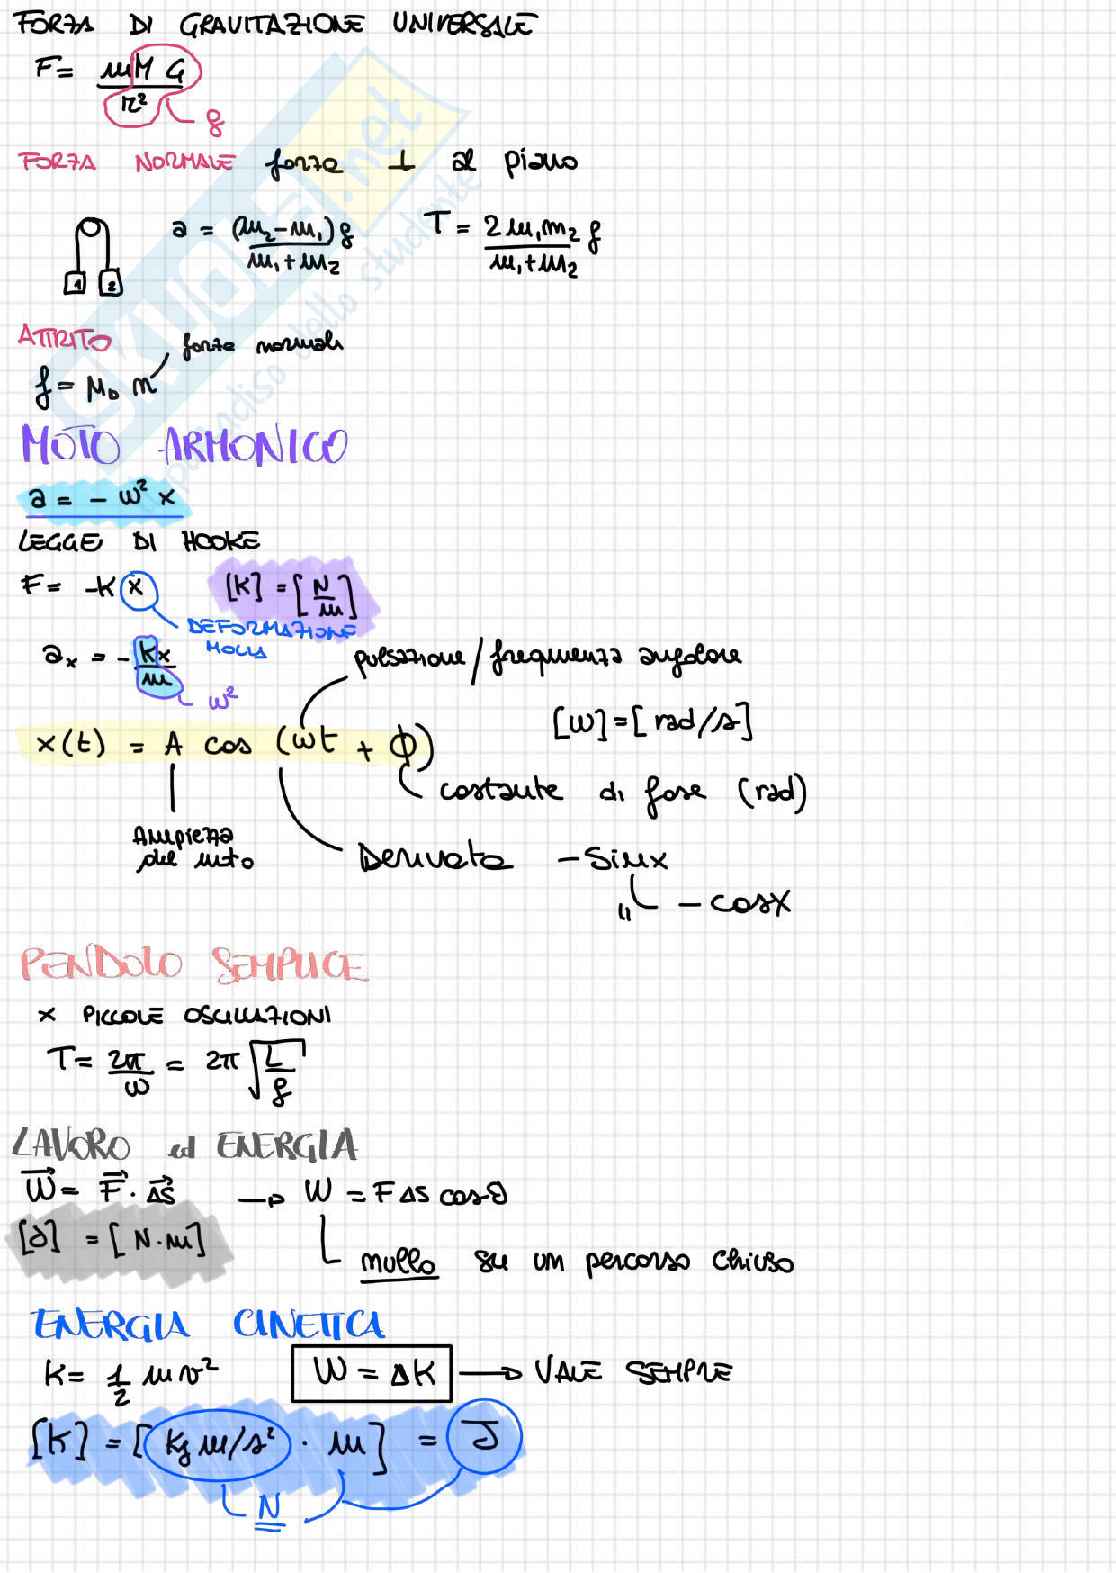 FORZA DI GRAVITAZIONE UNIVERSALE
F = mM G / r²
g
FORZA NORMALE forza ⊥ al piano
a = (m₂-m₁)g / m₁+m₂
T = 2m₁m₂ g / m₁+m₂
1 2
ATTRITO
forza normale
f = μD n
MOTO ARMONICO
a = - ω² x
LEGGE DI HOOKE
F = -K x [K] = [N/m]
DEFORMAZIONE MOLLA
aₓ = - Kx/m
ω²
pulsazione / frequenza angolare
[ω] = [rad/s]
x(t) = A cos (ωt + ϕ)
costante di fase (rad)
Ampiezza del moto
Derivata - sinx
" - cosx
PENDOLO SEMPLICE
x PICCOLE OSCILLAZIONI
T = 2π/ω = 2π √L/g
LAVORO ed ENERGIA
W = F · Δs → W = F Δs cosθ
[J] = [N·m]
nullo su un percorso chiuso
ENERGIA CINETICA
K = 1/2 mv² W = ΔK → VALE SEMPRE
[K] = [kg m/s² · m] = J
N
SKUOLA.net
il paradiso dello studente